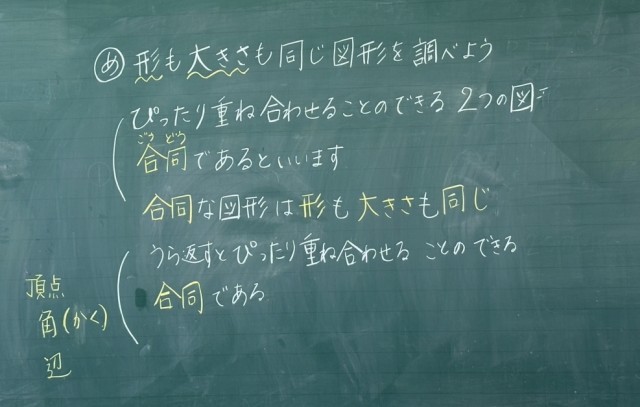 め 形も大きさも同じ図形を調べよう
ぴったり重ね合わせることのできる2つの図
ごうどう
合同であるといいます
合同な図形は形も大きさも同じ
うら返すとぴったり重ね合わせることのできる
合同である
頂点
角(かく)
辺